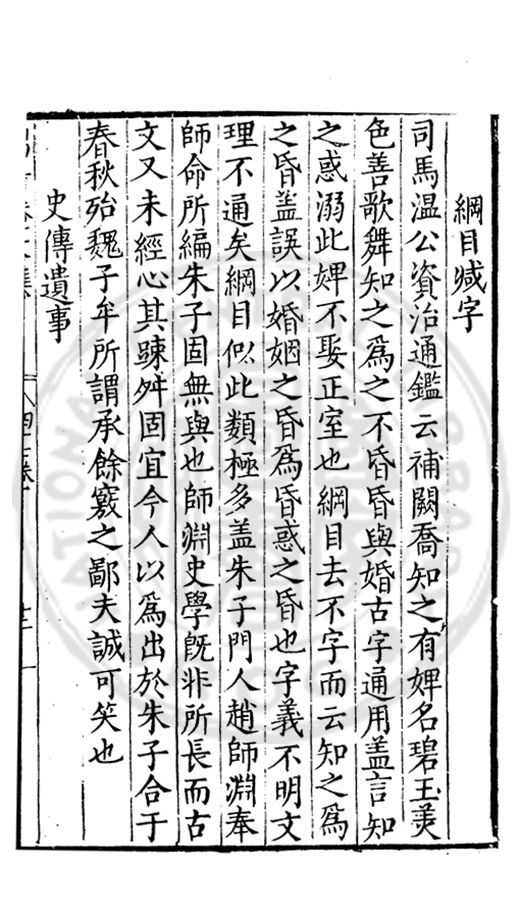 綱目减字
司馬溫公資治通鑑云補闕喬知之有婢名碧玉美
色善歌舞知之爲之不昏昏與婚古字通用盖言知
之惑溺此婢不娶正室也綱目去不字而云知之爲
之昏盖誤以婚姻之昏爲昏惑之昏也字義不明文
理不通矣綱目似此類極多盖朱子門人趙師淵奉
師命所編朱子固無與也師淵史學旣非所長而古
文又未經心其踈舛固宜今人以爲出於朱子合于
春秋殆魏子牟所謂承餘竅之鄙夫誠可笑也
史傳遺事